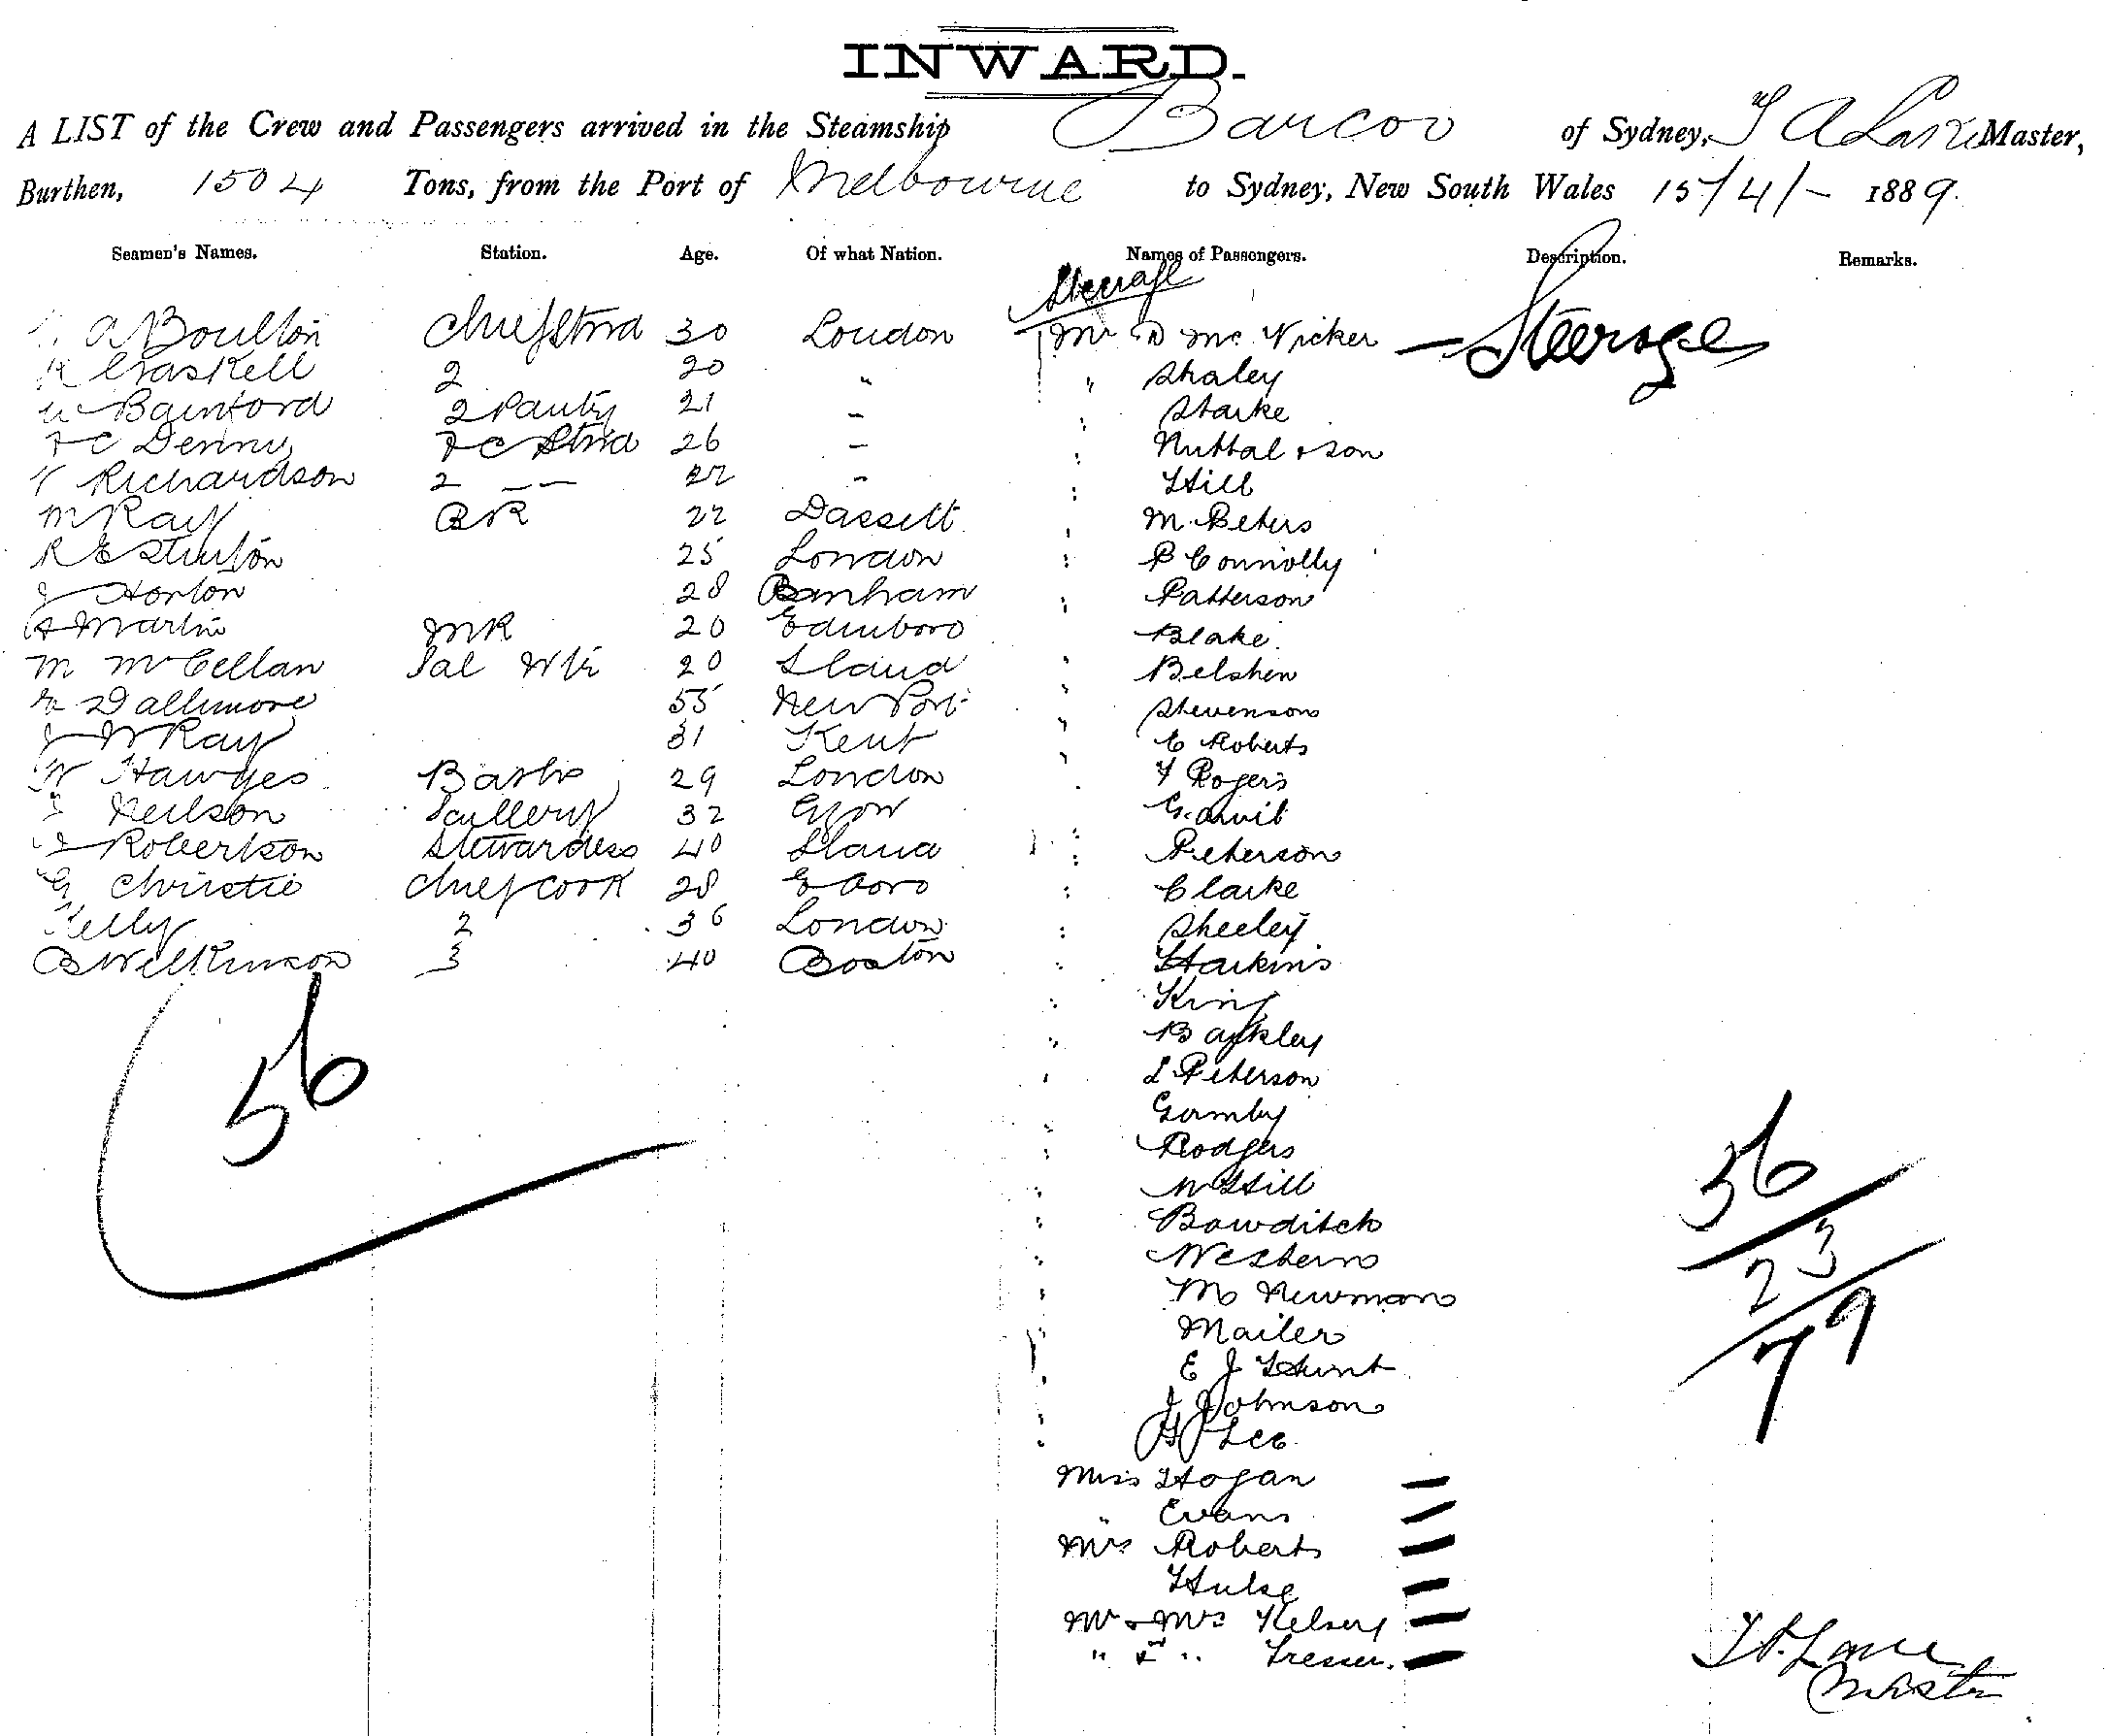 INWARD.
A LIST of the Crew and Passengers arrived in the Steamship Barcoo of Sydney, Master,
Burthen, 1504 Tons, from the Port of Melbourne to Sydney, New South Wales 15/4/- 1889.
Seamen's Names. Station. Age. Of what Nation. Names of Passengers. Description. Remarks.
Steerage
A Boulton Chief Stwd 30 London Mr D Mc Vicker — Steerage
Gaskell 2 20 " " Shaley
Bamford 2 Pantry 21 - " Starke
F C Denny F C Stwd 26 - " Nuttal & son
Richardson 2 -- 22 - " Hill
M Ray BR 22 Dassett " M. Peters
R E Stinton 25 London " P Connolly
J Horton 28 Banham " Patterson
A Martin MR 20 Edinboro Blake.
M McCellan Sal Wtr 20 Sland " Belshen
Dallimore 55 New Port " Stevenson
J W Ray 31 Kent " E Roberts
W Hawges 29 London " F Rogers
Neilson Scullery 32 " G. Anvil
Robertson Stewardess 40 " Peterson
G Christie Chief Cook 28 E boro " Clarke
Kelly 2 36 London " Sheeley
B Wilkinson 3 40 Boston " Harkins
" King
56 " Barkley
" L Peterson
Gormby
" Rodgers
" W Hill 56
" Bowditch
" Western 23
" M Newman
" Mailer 79
" E J Hunt
" J Johnson
" H Lee
Miss Hogan —
" Evans —
Mrs Roberts —
Hulse —
Mr & Mrs Kelsey —
" & " —
Master